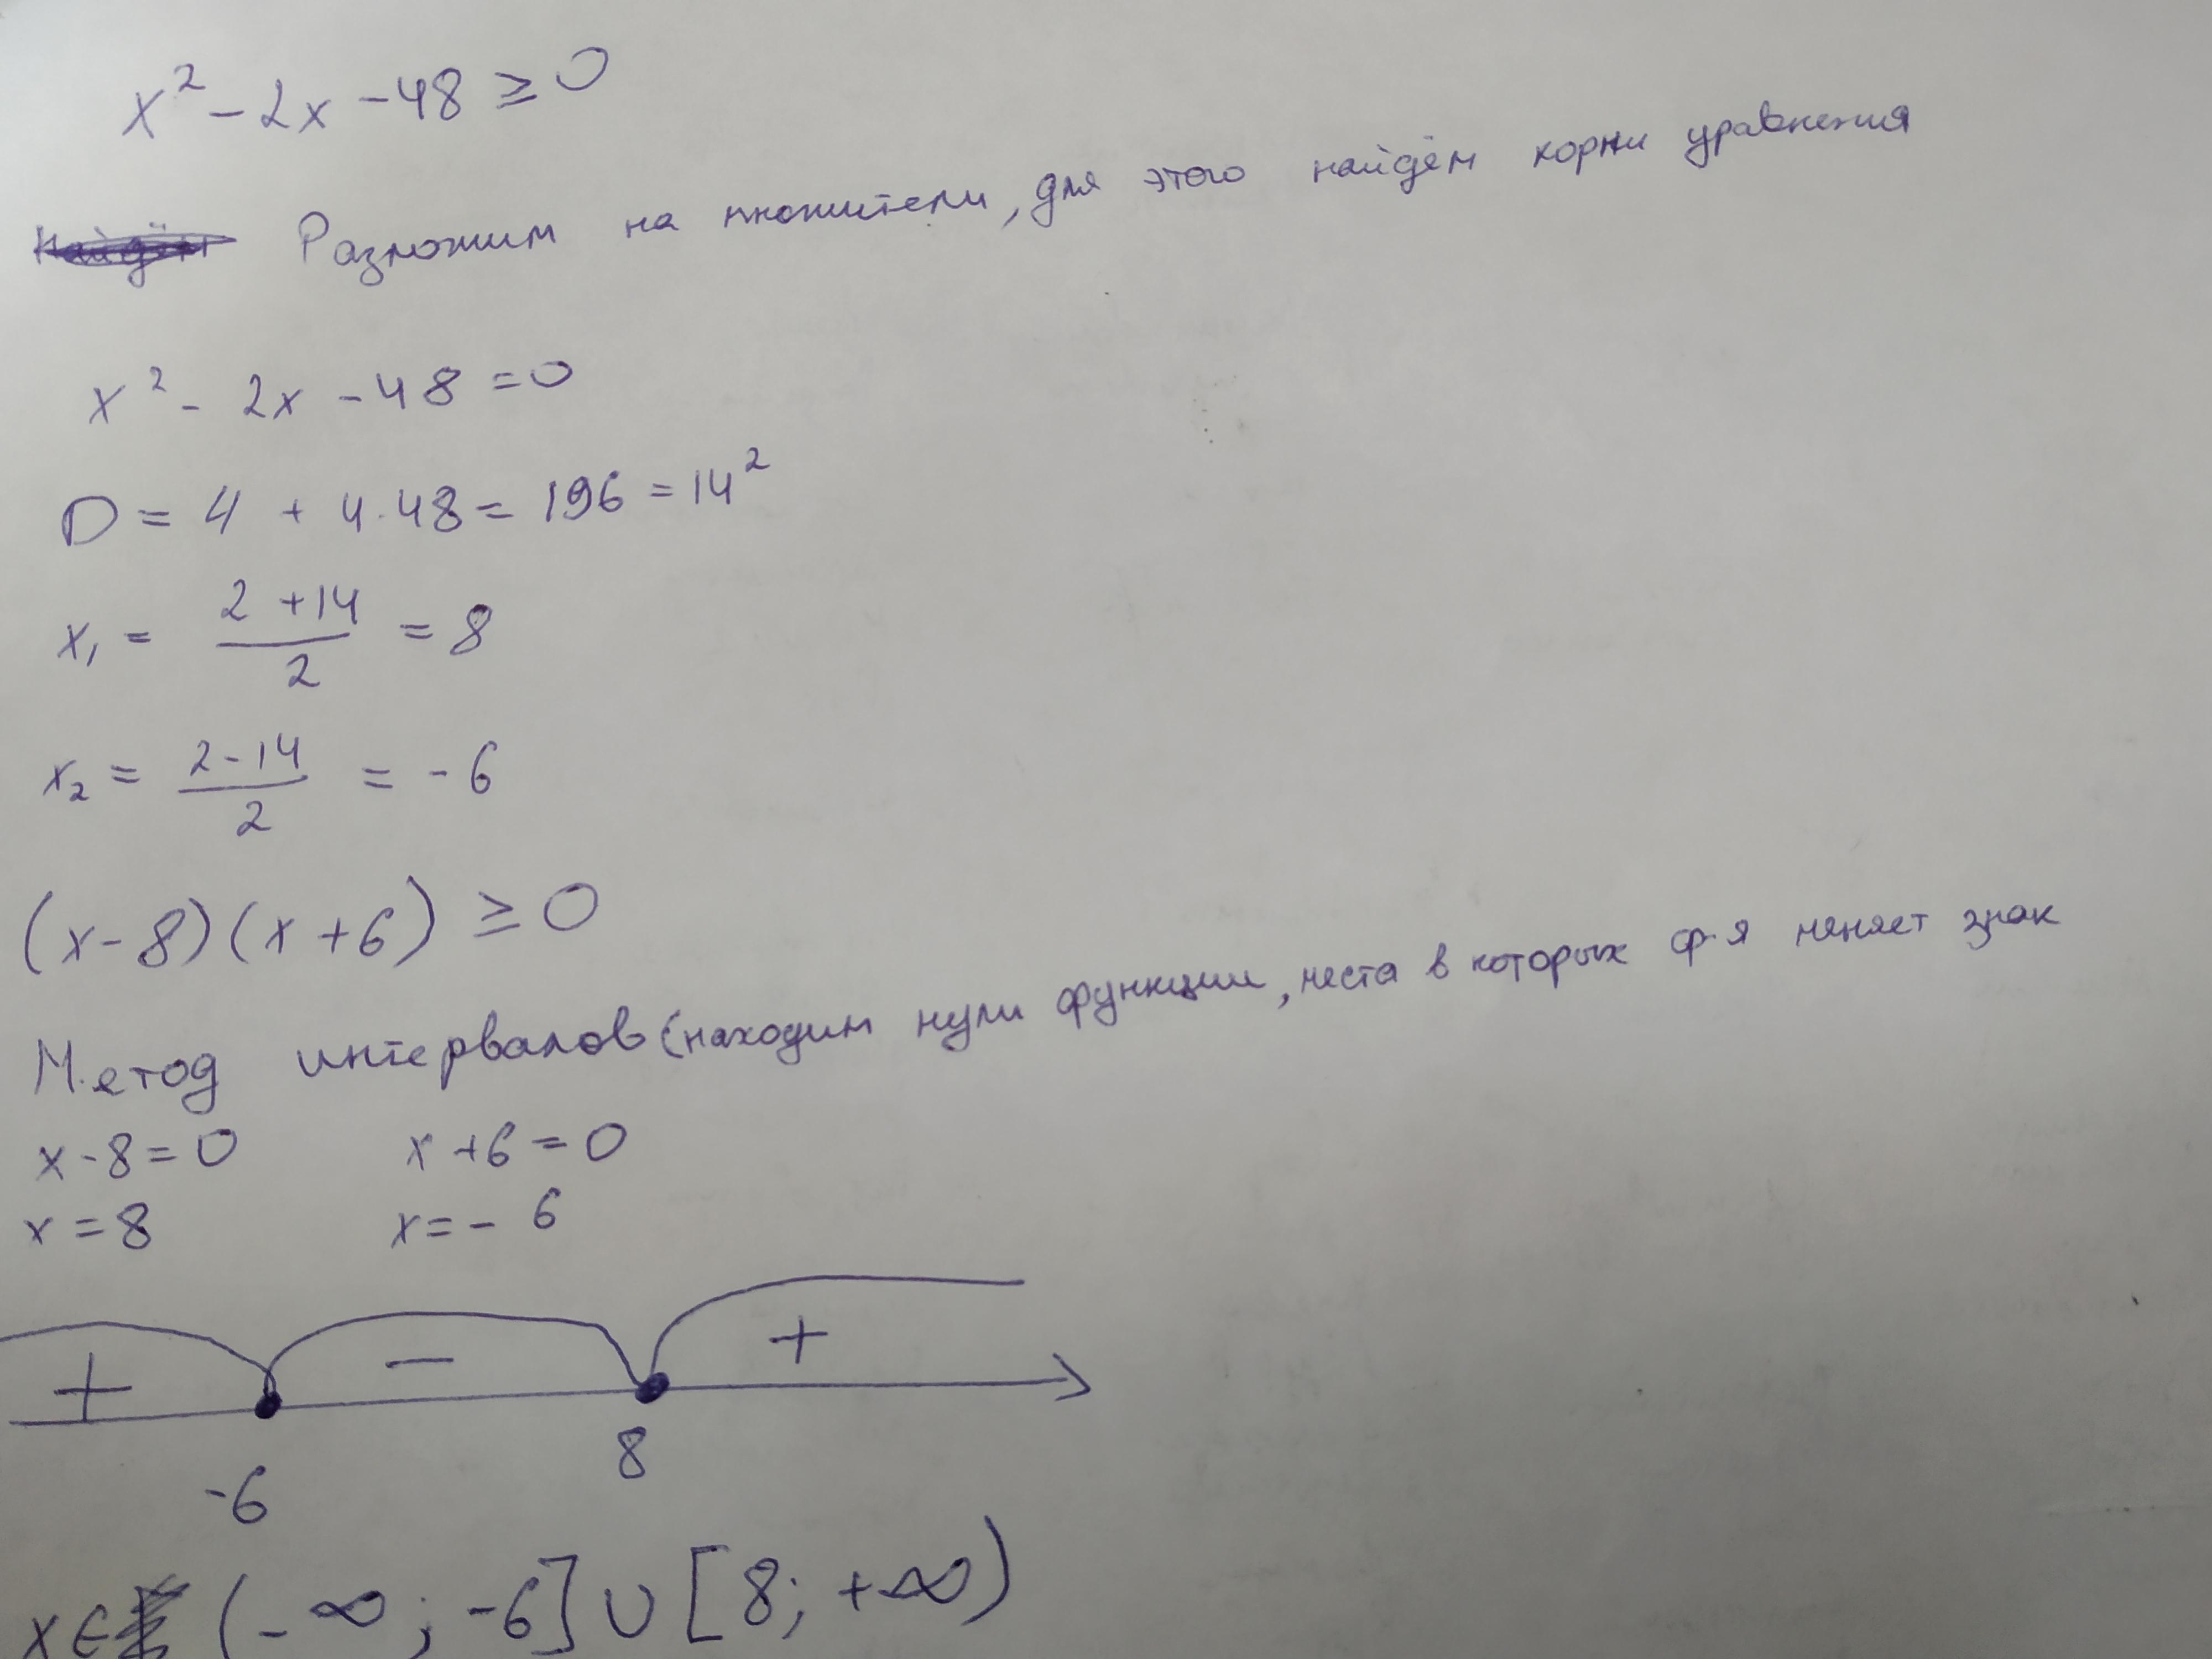 x² - 2x - 48 ≥ 0
Разложим на множители, для этого найдём корни уравнения
x² - 2x - 48 = 0
D = 4 + 4·48 = 196 = 14²
x₁ = (2 + 14)/2 = 8
x₂ = (2 - 14)/2 = -6
(x - 8)(x + 6) ≥ 0
Метод интервалов (находим нули функции, места в которых ф-я меняет знак
x - 8 = 0 x + 6 = 0
x = 8 x = - 6
+ - +
-6 8
x ∈ (-∞; -6] ∪ [8; +∞)